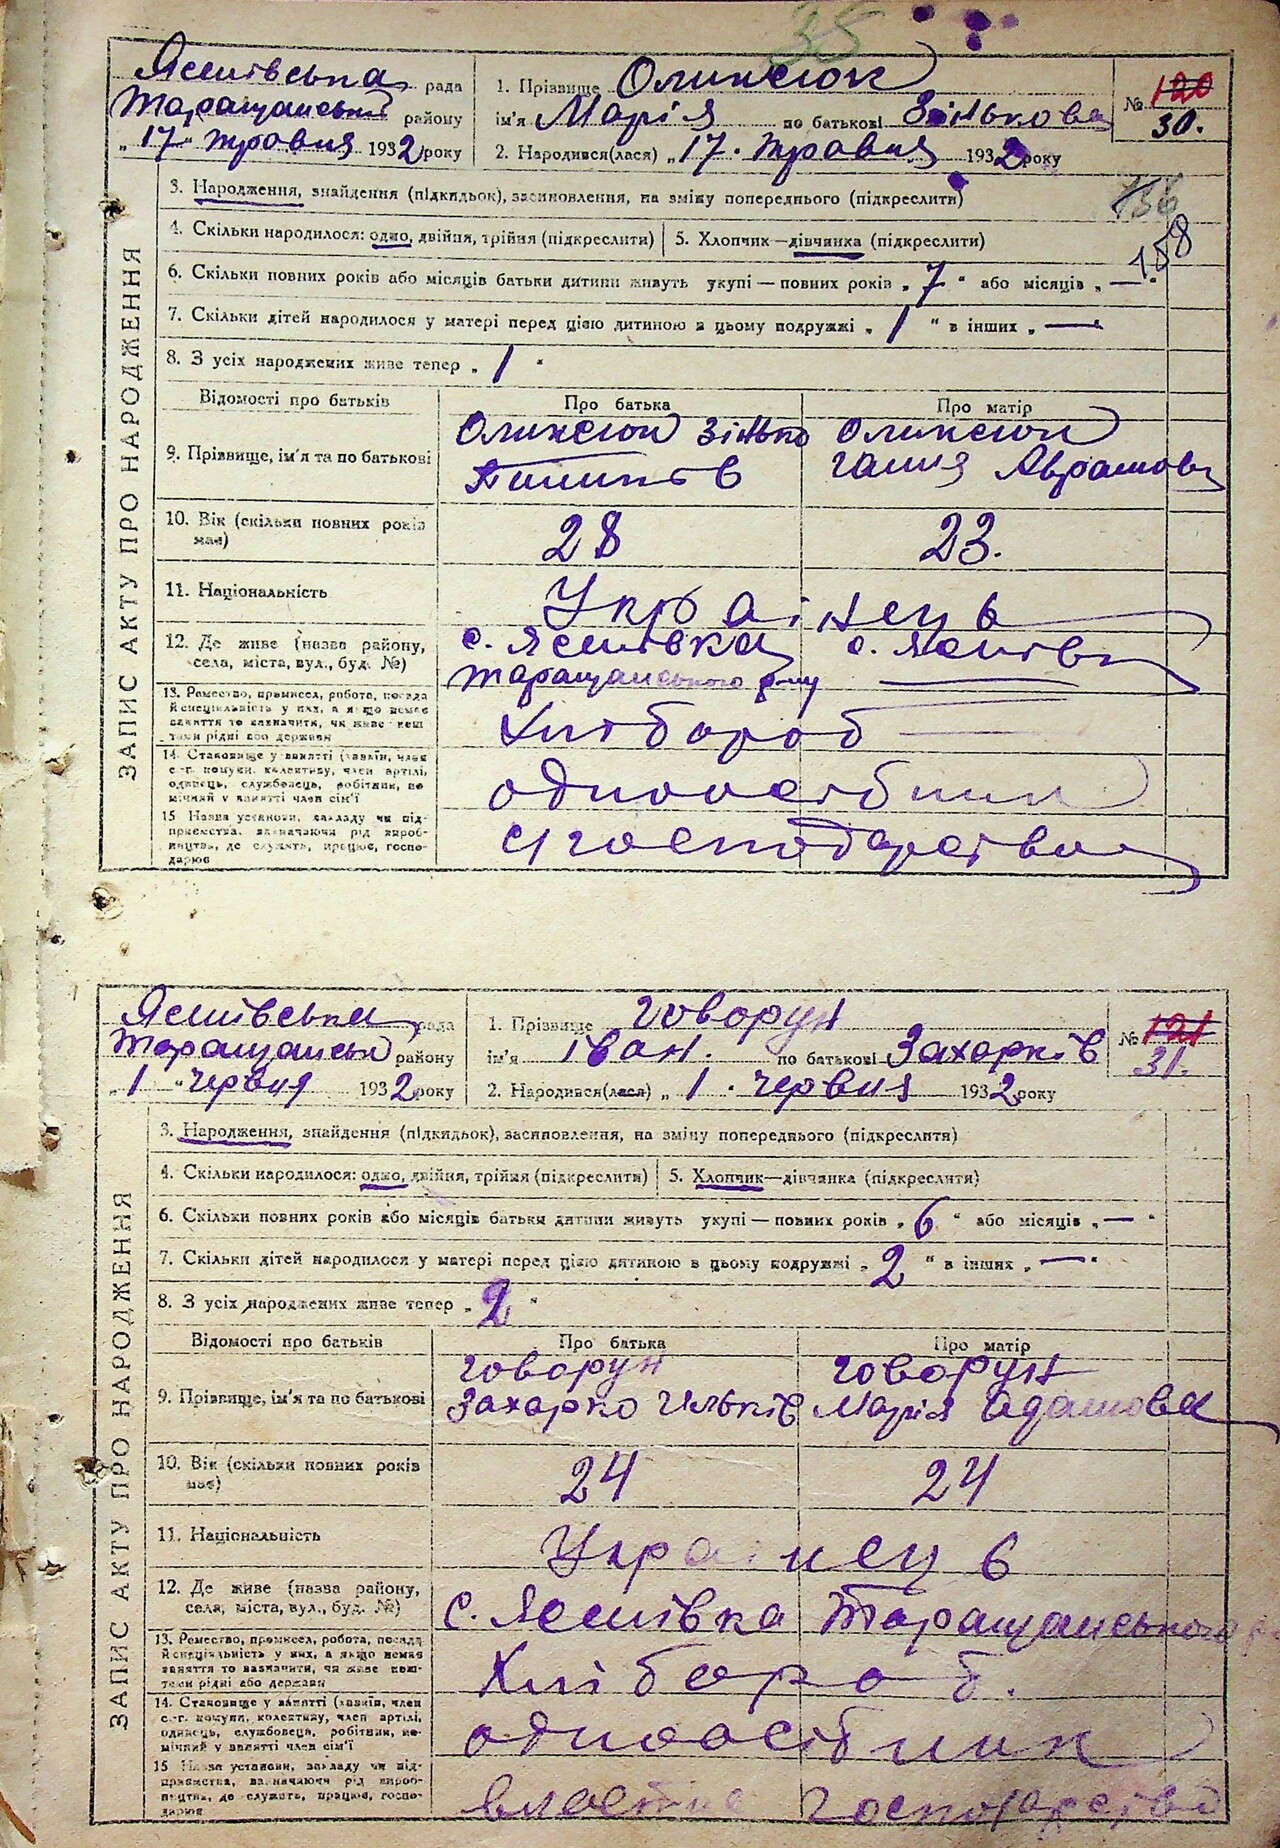 35
Ясинівська рада
Таращанський району
„17" травня 1932 року
1. Прізвище Оликсюк
ім'я Марія по батькові Зінькова
2. Народився(лася) „17. травня 1932 року
№ 120
30.
136
158
ЗАПИС АКТУ ПРО НАРОДЖЕННЯ
3. Народження, знайдення (підкидьок), засиновлення, на зміну попереднього (підкреслити)
4. Скільки народилося: одно, двійня, трійня (підкреслити) 5. Хлопчик—дівчинка (підкреслити)
6. Скільки повних років або місяців батьки дитини живуть укупі — повних років „ 7 " або місяців „ — "
7. Скільки дітей народилося у матері перед цією дитиною в цьому подружжі „ 1 " в інших „ —
8. З усіх народжених живе тепер „ 1 "
Відомості про батьків Про батька Про матір
9. Прізвище, ім'я та по батькові
Оликсюк Зінько
Оликсюк
Галия Аврамова
10. Вік (скільки повних років має) 28 23.
11. Національність Українець
12. Де живе (назва району, села, міста, вул., буд. №)
с. Ясинівка
Таращанського р-ну
с. Ясинівка
13. Ремество, промисел, робота, посада й спеціальність у них, а якщо немає заняття то зазначити, чи живе кошами рідні або держави
Хлібороб
14. Становище у занятті (хазяїн, член с.-г. комуни, колективу, член артілі, одинець, службовець, робітник, помічний у занятті член сім'ї
одноосібник
15 Назва установи, закладу чи підприємства, зазначаючи рід виробництва, де служить, працює, господарює
с/господарства
Ясинівська рада
Таращанськ району
„ 1 " червня 1932 року
1. Прізвище Говорун
ім'я Іван. по батькові Захарків
2. Народився(лася) „ 1 . червня 1932 року
№ 121
31.
ЗАПИС АКТУ ПРО НАРОДЖЕННЯ
3. Народження, знайдення (підкидьок), засиновлення, на зміну попереднього (підкреслити)
4. Скільки народилося: одно, двійня, трійня (підкреслити) 5. Хлопчик—дівчинка (підкреслити)
6. Скільки повних років або місяців батьки дитини живуть укупі — повних років „ 6 " або місяців „ — "
7. Скільки дітей народилося у матері перед цією дитиною в цьому подружжі „ 2 " в інших „ — "
8. З усіх народжених живе тепер „ 2 "
Відомості про батьків Про батька Про матір
9. Прізвище, ім'я та по батькові
Говорун
Захарко Ильків
Говорун
Марія Адамова
10. Вік (скільки повних років має) 24 24
11. Національність Українець
12. Де живе (назва району, села, міста, вул., буд. №) с. Ясинівка Таращанського
13. Ремество, промисел, робота, посада й спеціальність у них, а якщо немає заняття то зазначити, чи живе коштами рідні або держави
Хлібороб.
14. Становище у занятті (хазяїн, член с.-г. комуни, колективу, член артілі, одинець, службовець, робітник, помічний у занятті член сім'ї
одноосібник
15 Назва установи, закладу чи підприємства, зазначаючи рід виробництва, де служить, працює, господарює
власне господарство